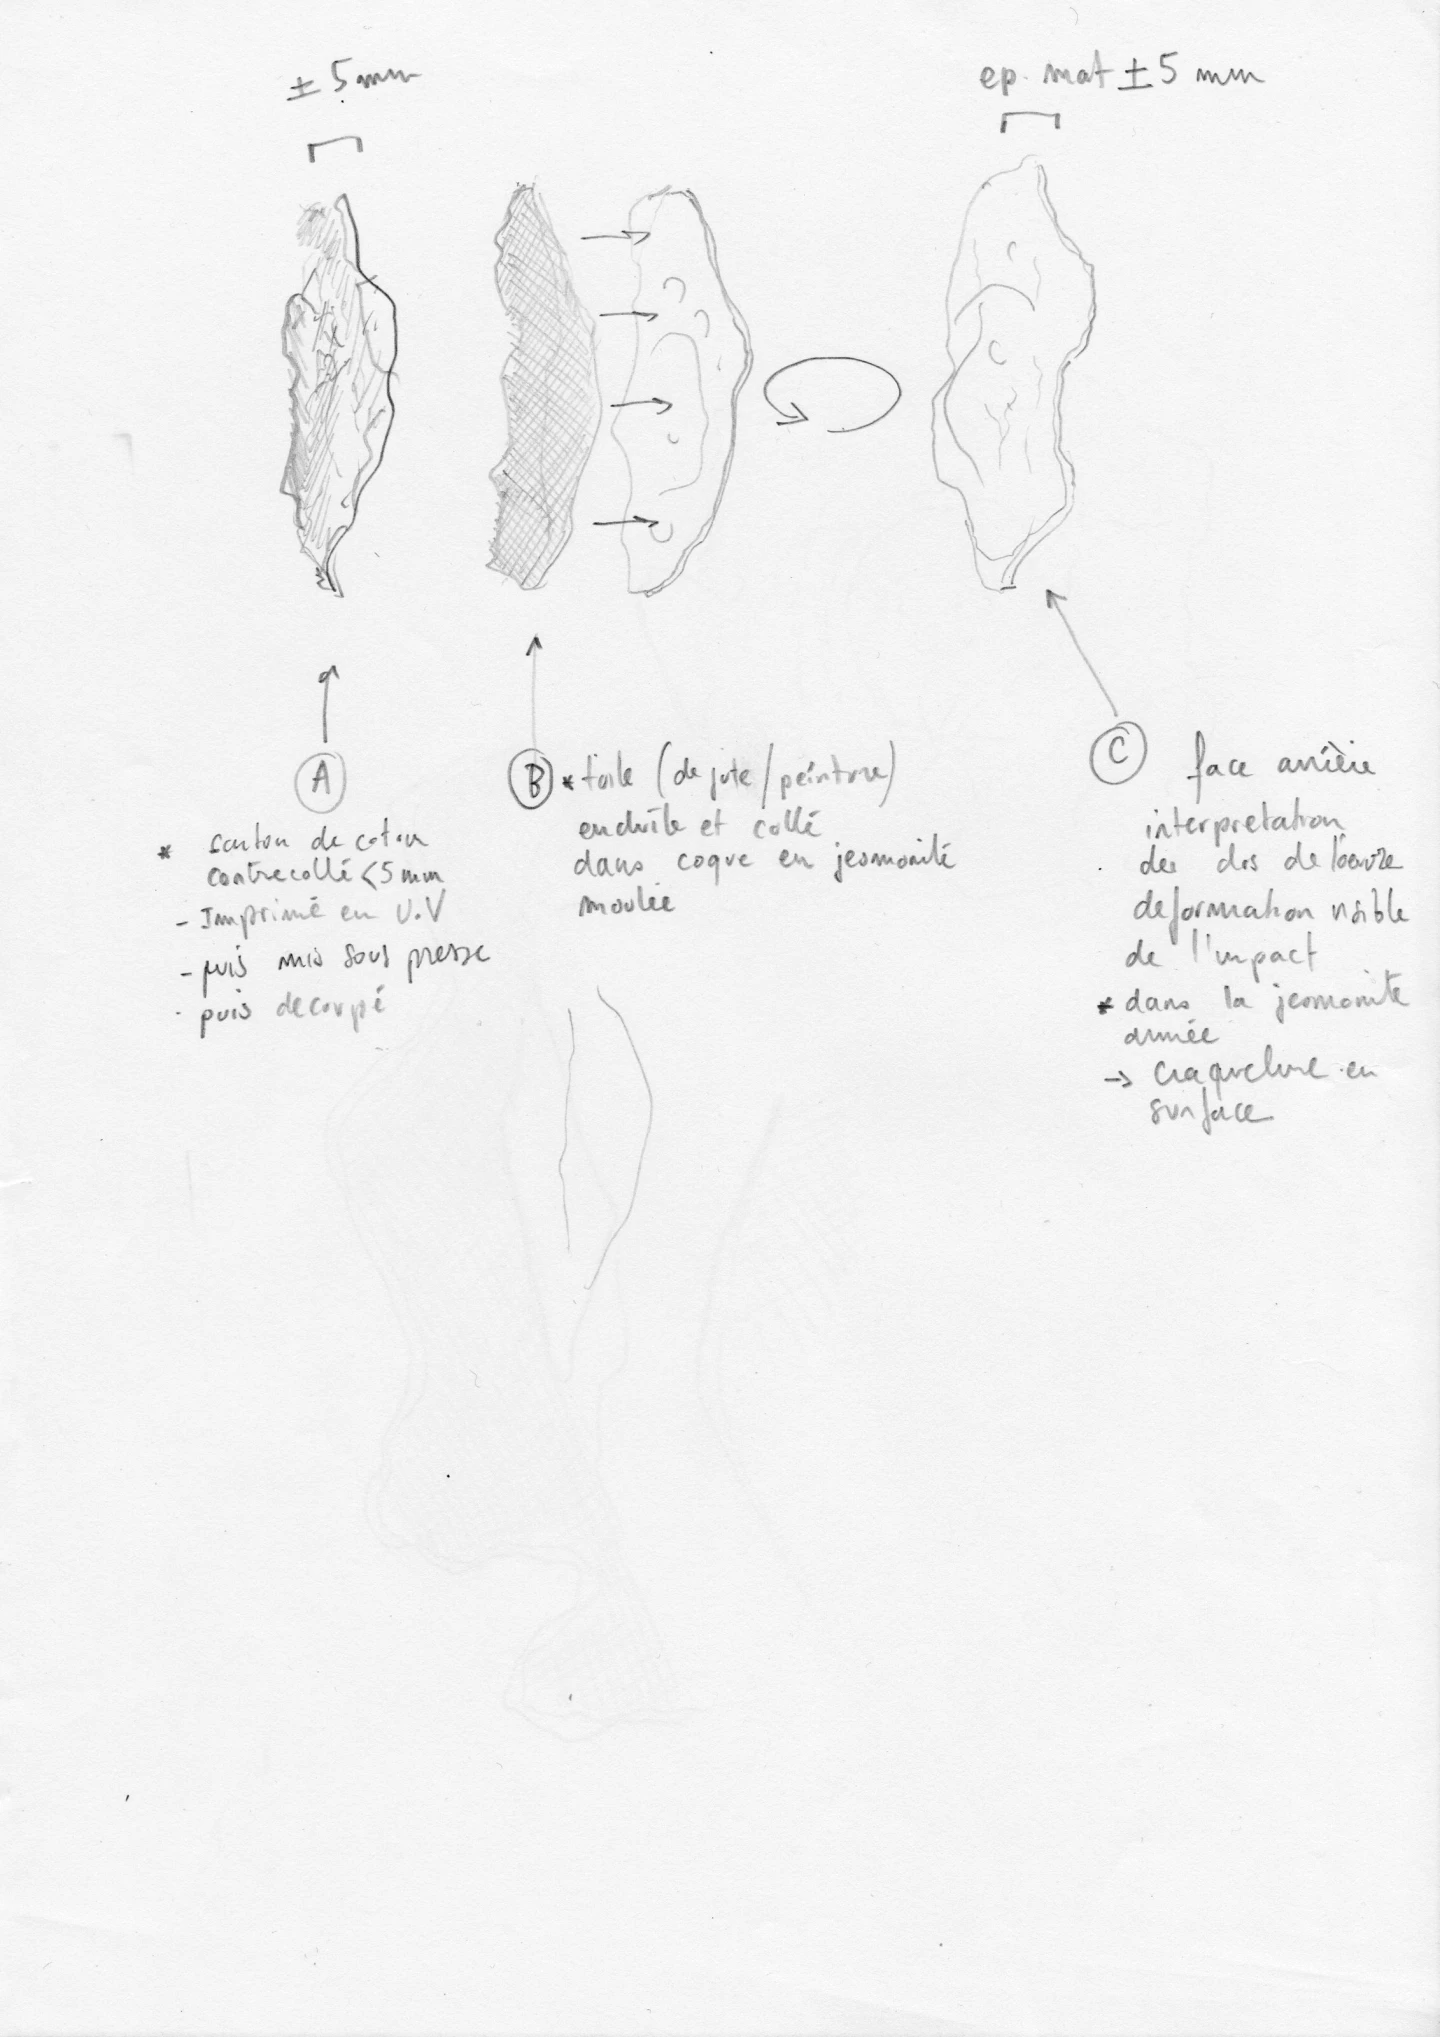 ± 5 mm
ep. mat ± 5 mm
A
* carton de coton
contrecollé < 5 mm
- Imprimé en U.V
- puis mis sous presse
- puis decoupé
B * toile (de jute / peinture)
enduite et collé
dans coque en jesmonite
moulée
C face arrière
interpretation
des dos de l'œuvre
deformation visible
de l'impact
* dans la jesmonite
armée
→ craquelure en
surface